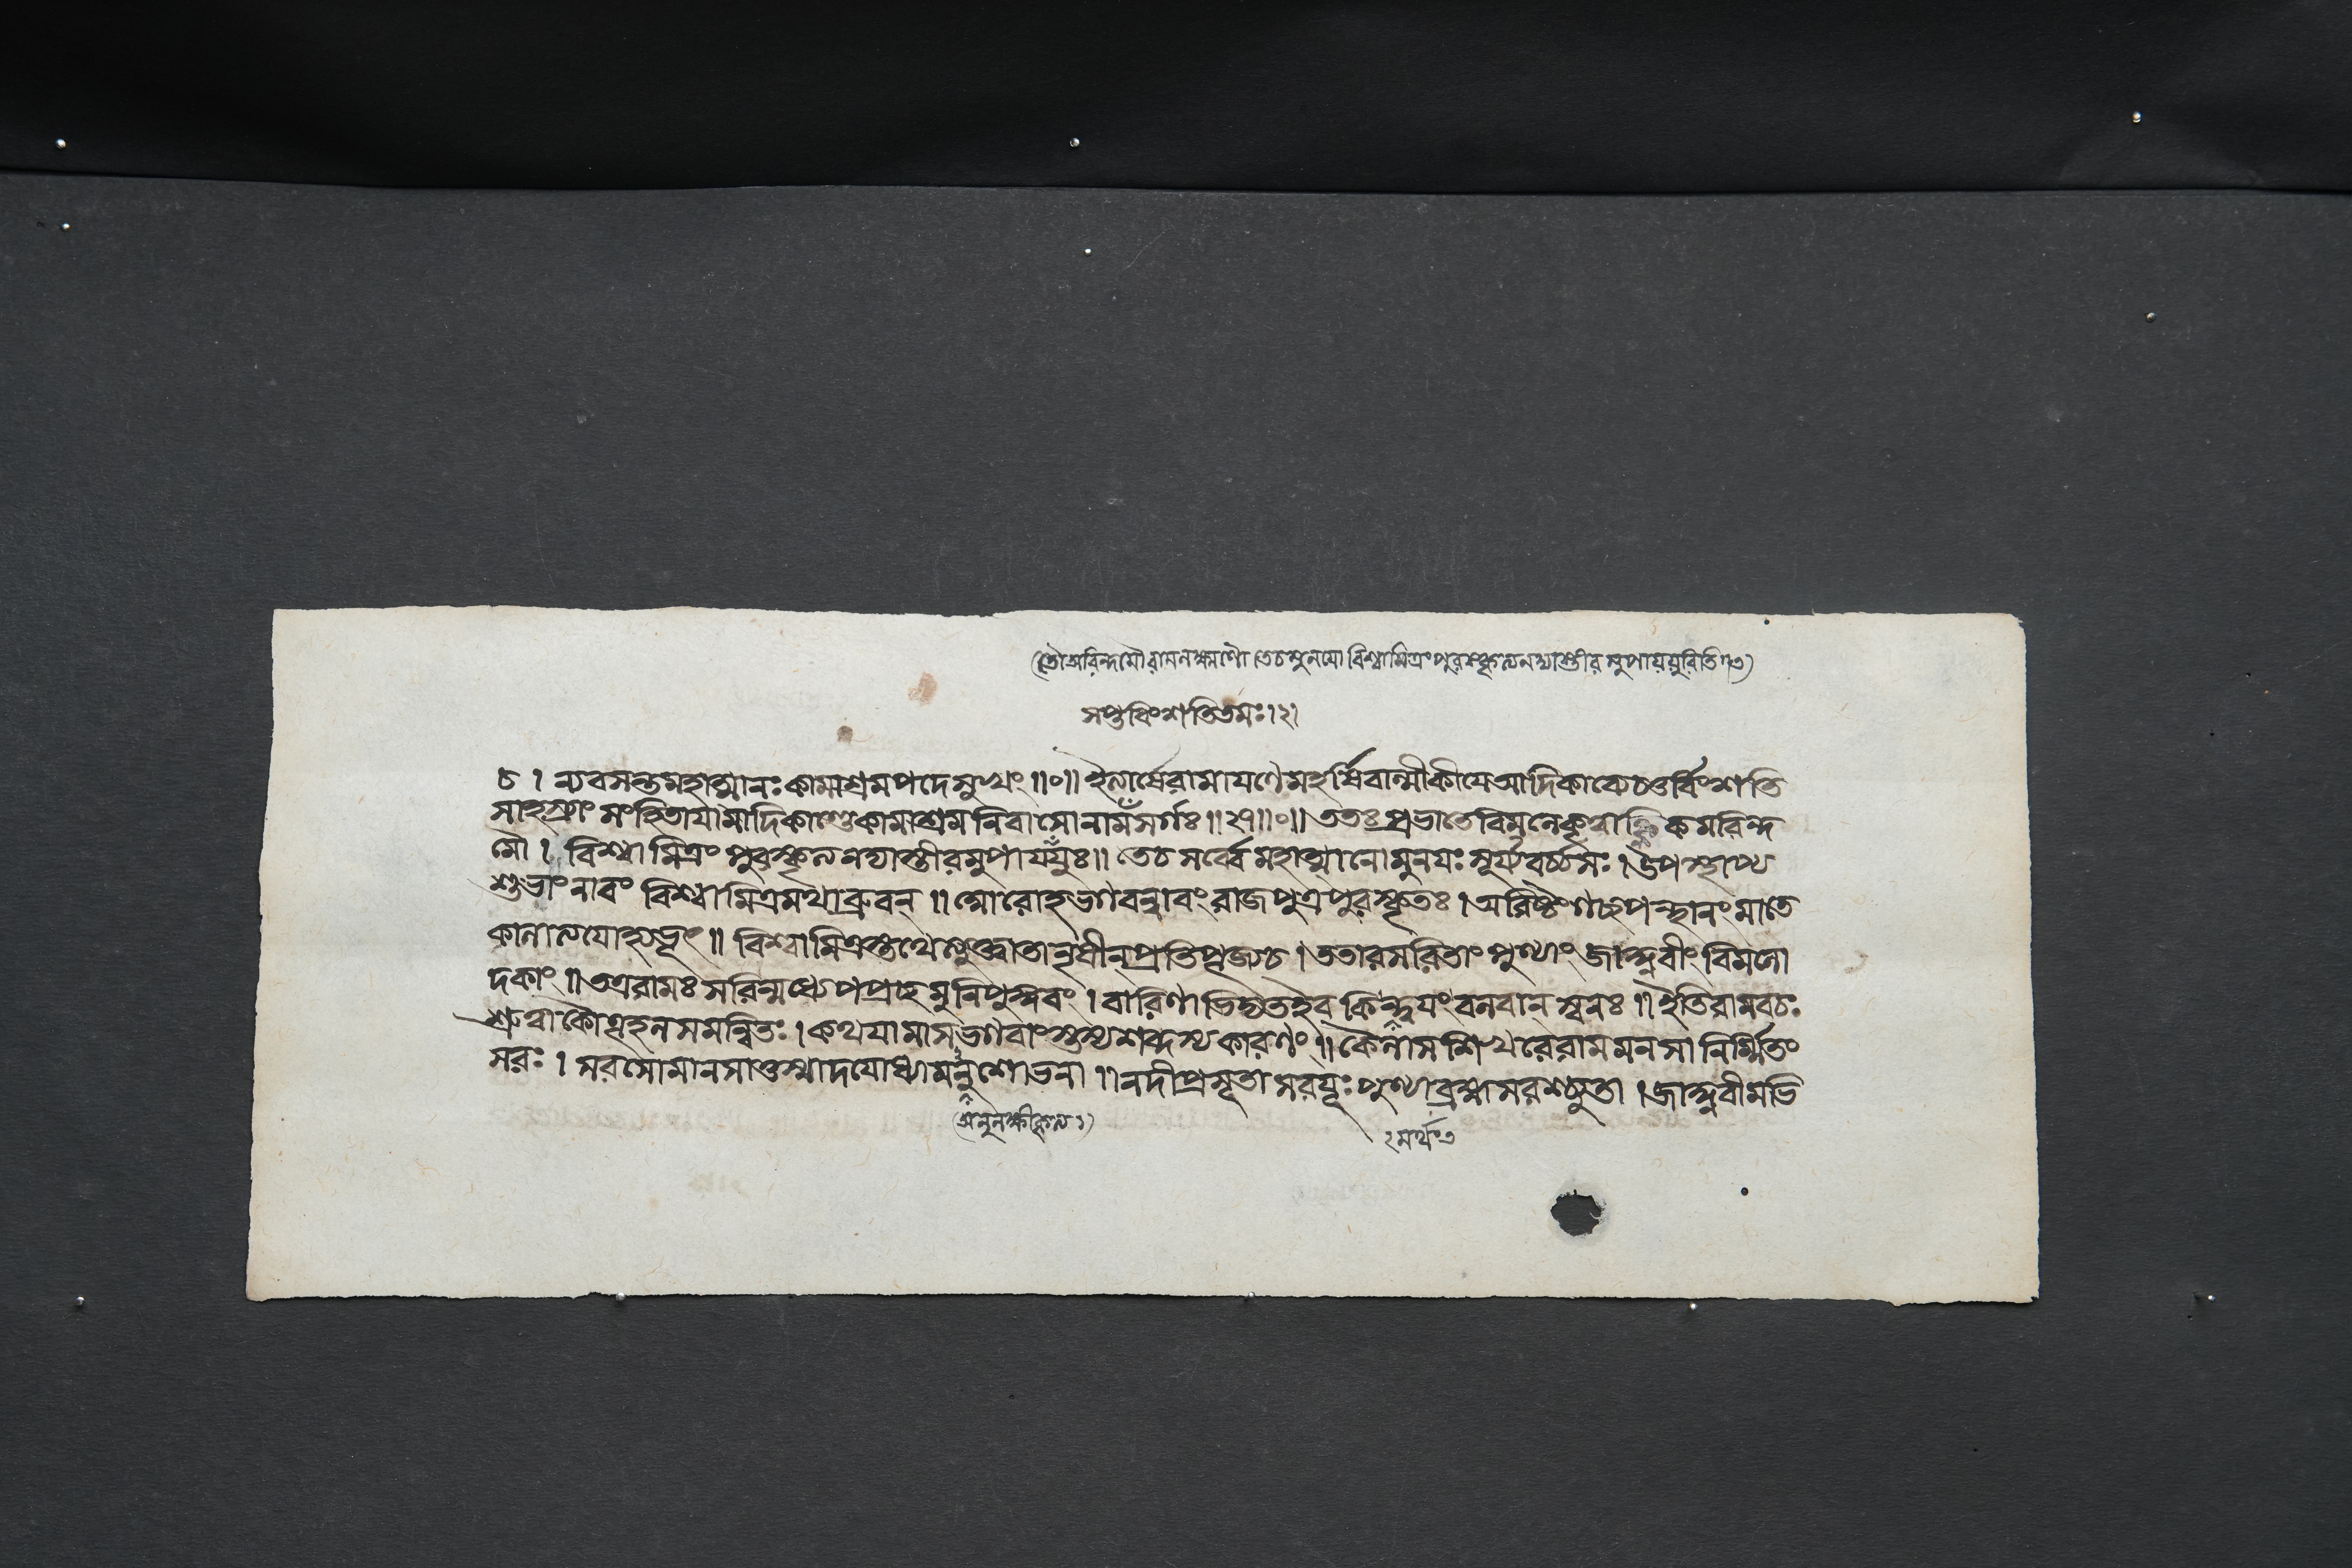 (তৌঅরিন্দমৌরামলক্ষ্মণৌ তেচমুনযো বিশ্বামিত্রংপুরস্কৃত্যনদ্যাস্তীরমুপাযযুরিতি ৩)
সপ্তবিংশতিতমঃ।২।
চ । ন্যবসন্তমহাত্মানঃকামাশ্রমপদেসুখং ॥০॥ ইত্যার্ষেরামাযণেমহর্ষিবাল্মীকীযেআদিকাব্যেচতুর্বিংশতি
সাহস্র্যাং সংহিতাযামাদিকাণ্ডেকামাশ্রমনিবাসোনামসর্গঃ ॥২৭॥০॥ ততঃপ্রভাতেবিমলেকৃত্বাহ্নিকমরিন্দ
মৌ । বিশ্বামিত্রং পুরস্কৃত্যনদ্যাস্তীরমুপাযযুঃ॥ তেচসর্ব্বেমহাত্মানোমুনযঃসূর্য্যবর্চ্চসঃ । উপস্থাপ্য
শুভাংনাবং বিশ্বামিত্রমথাব্রুবন্ ॥ আরোহভগবন্নাবংরাজপুত্রপুরস্কৃতঃ । অরিষ্টংগচ্ছপন্থানংমাতে
কালাত্যযোস্ত্বভূৎ ॥ বিশ্বামিত্রস্তথেত্যুক্ত্বাতানৃষীন্প্রতিপূজ্যচ । ততারসরিতাং পুণ্যাং জাহ্নবীং বিমলো
দকাং ॥ তত্ররামঃ সরিন্মধ্যেপপ্রচ্ছমুনিপুঙ্গবং । বারিণাভিদ্যতইব কিন্ত্বযংবলবান্ স্বনঃ ॥ ইতিরামবচঃ
শ্রুত্বাকৌতূহলসমন্বিতঃ । কথযামাসভগবাংস্তস্যশব্দস্যকারণং ॥ কৈলাসশিখরেরামমনসা নির্ম্মিতং
সরঃ । সরসোমানসাত্তস্মাদযোধ্যামনুশোভনা ॥ নদীপ্রসৃতা সরযূঃ পুণ্যাব্রহ্মসরশ্চ্যুতা । জাহ্নবীমভি
(অনুলক্ষীকৃত্য১)